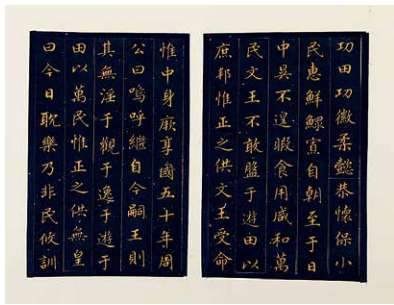 功田功徽柔懿恭懷保小
民惠鮮鰥寡自朝至于日
中昃不遑暇食用咸和萬
民文王不敢盤于遊田以
庶邦惟正之供文王受命
惟中身厥享國五十年周
公曰嗚呼繼自今嗣王則
其無淫于觀于逸于遊于
田以萬民惟正之供無皇
曰今日耽樂乃非民攸訓